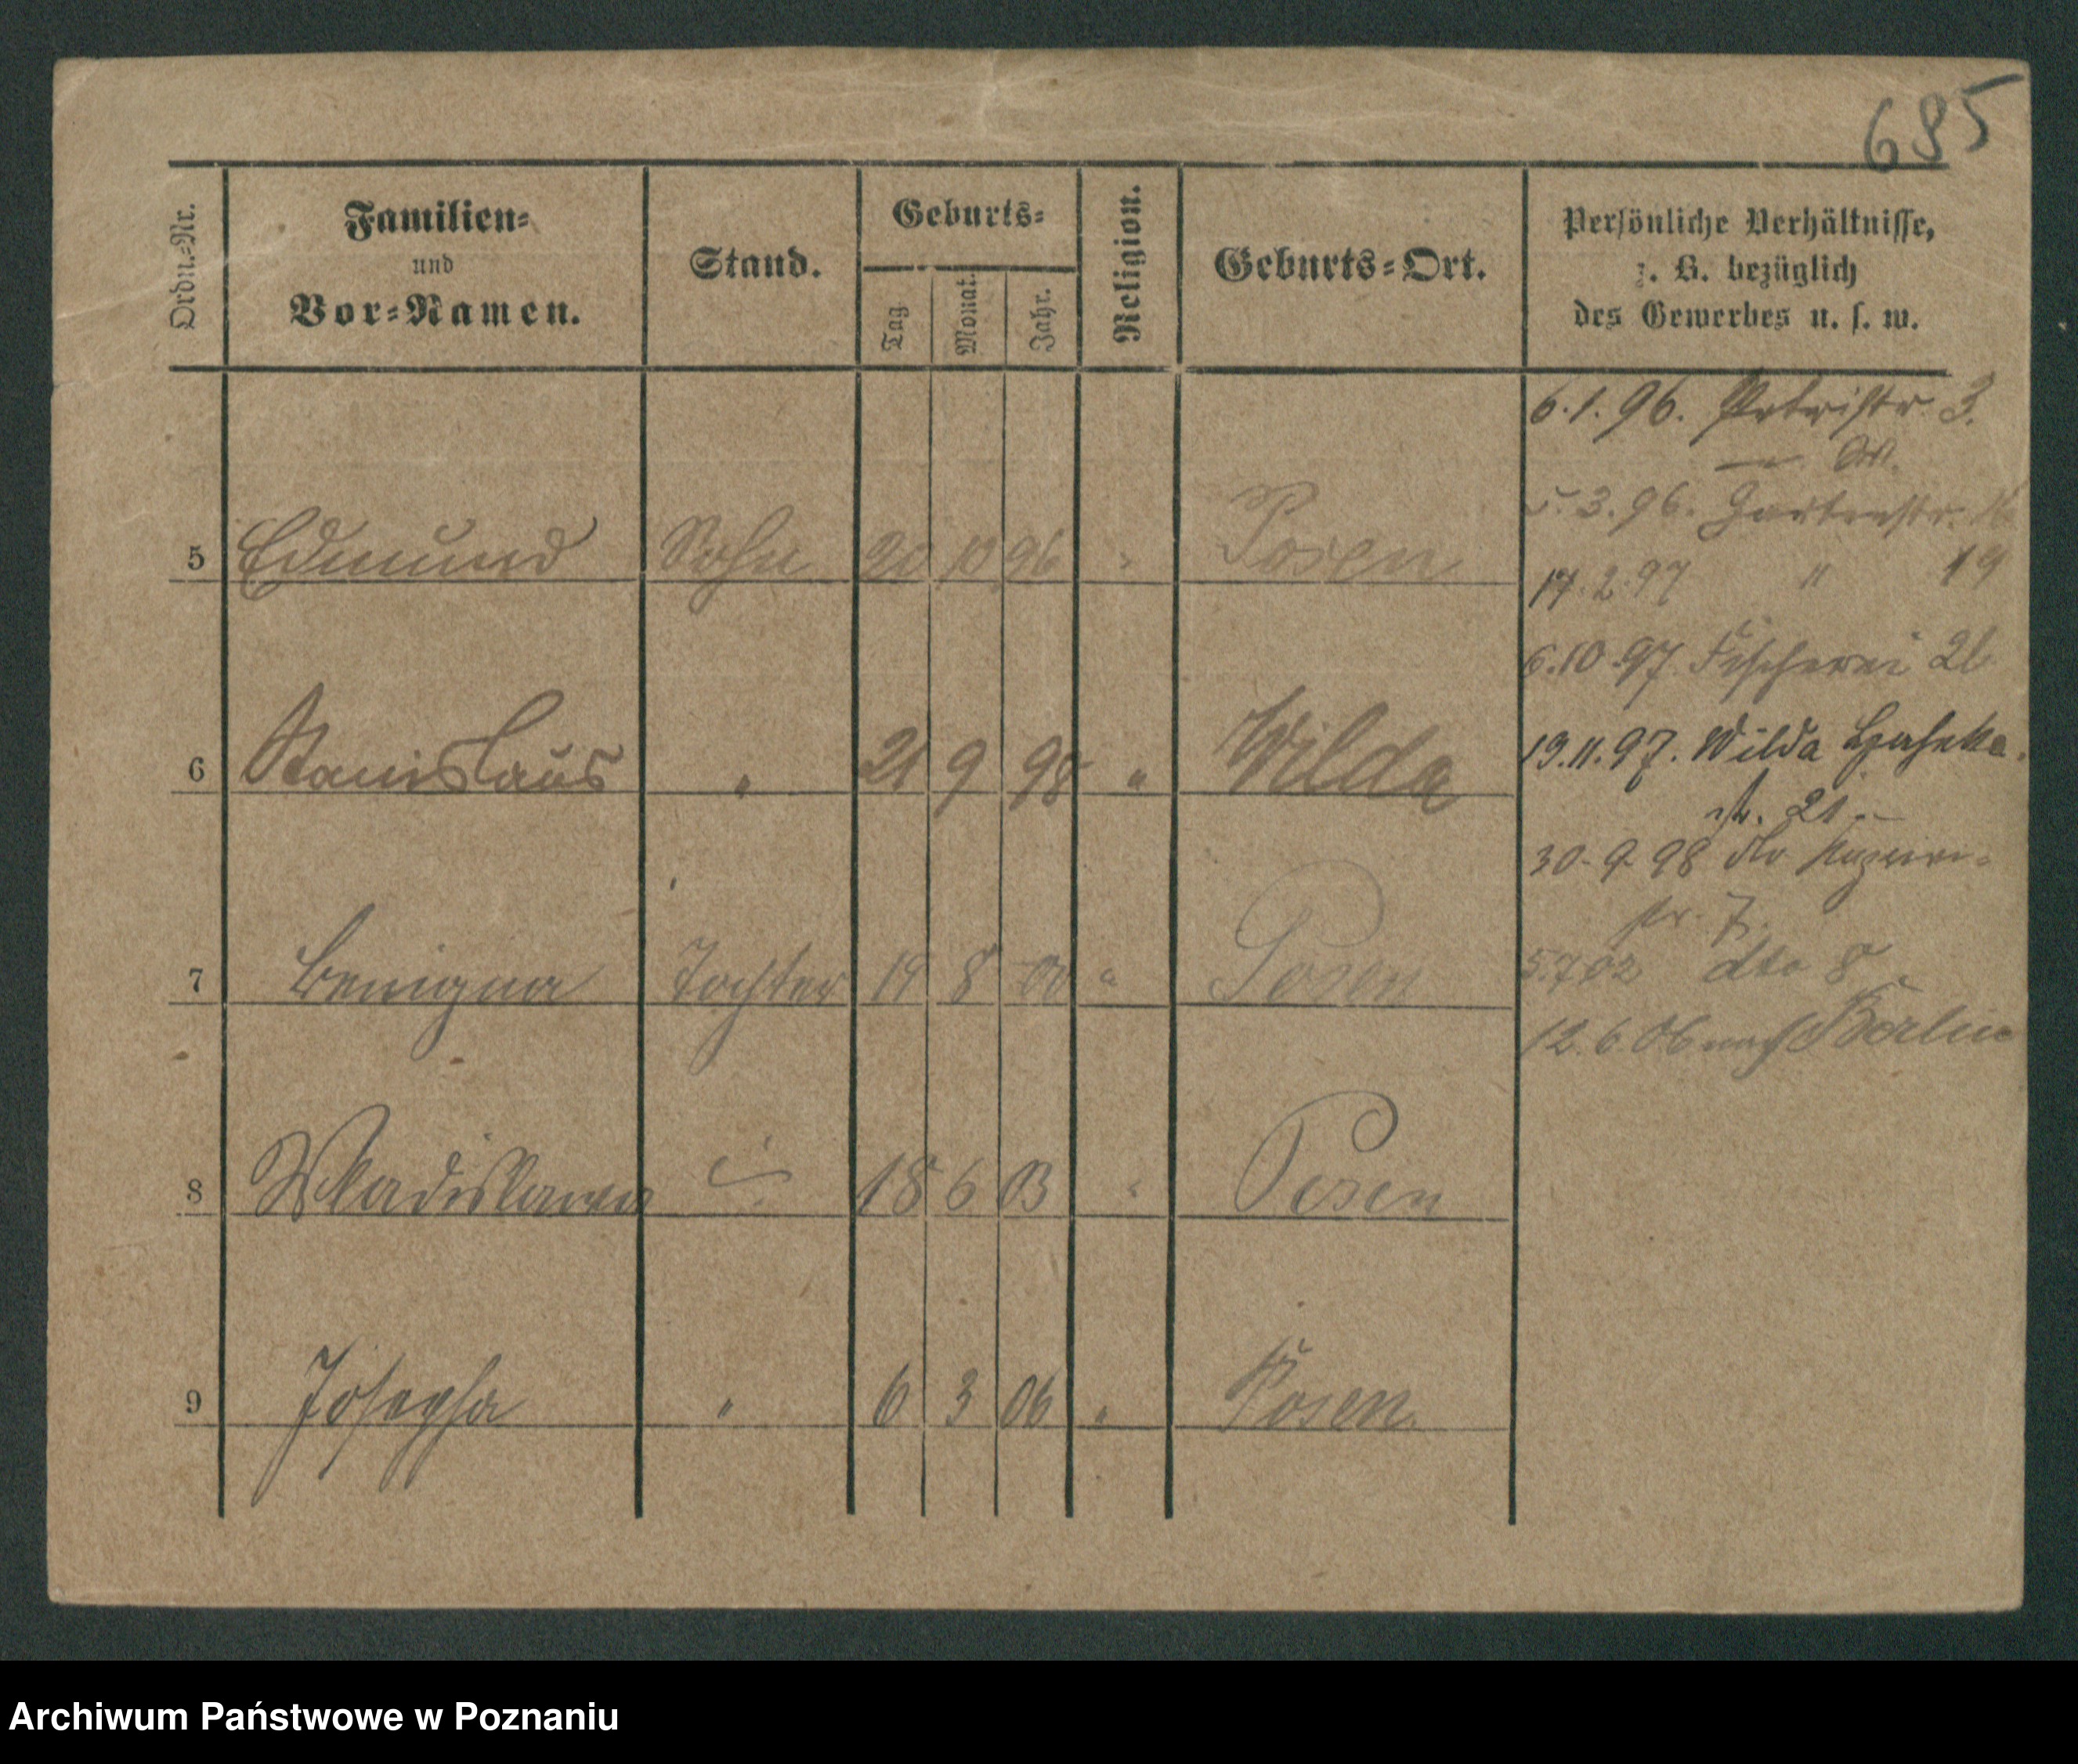 685
Ordn.-Nr.
Familien-
und
Vor-Namen.
Stand.
Geburts-
Tag
Monat.
Jahr.
Religion.
Geburts-Ort.
Persönliche Verhältnisse,
z. B. bezüglich
des Gewerbes u. s. w.
6.1.96. Petristr. 3.
5.3.96. Gartenstr.
17.2.97 " 19
6.10.97. Fischerei
19.11.97. Wilda
str. 21.
30.9.98 dto
str. 7.
5.7.02 dto 8
12.6.06 nach Berlin
5 Edmund Sohn 20 10 96 " Posen
6 Stanislaus " 21 9 98 " Wilda
7 Benigna Tochter 19 8 00 " Posen
8 Wladislawa 18 6 03 " Posen
9 Josepha " 6 3 06 " Posen.
Archiwum Państwowe w Poznaniu